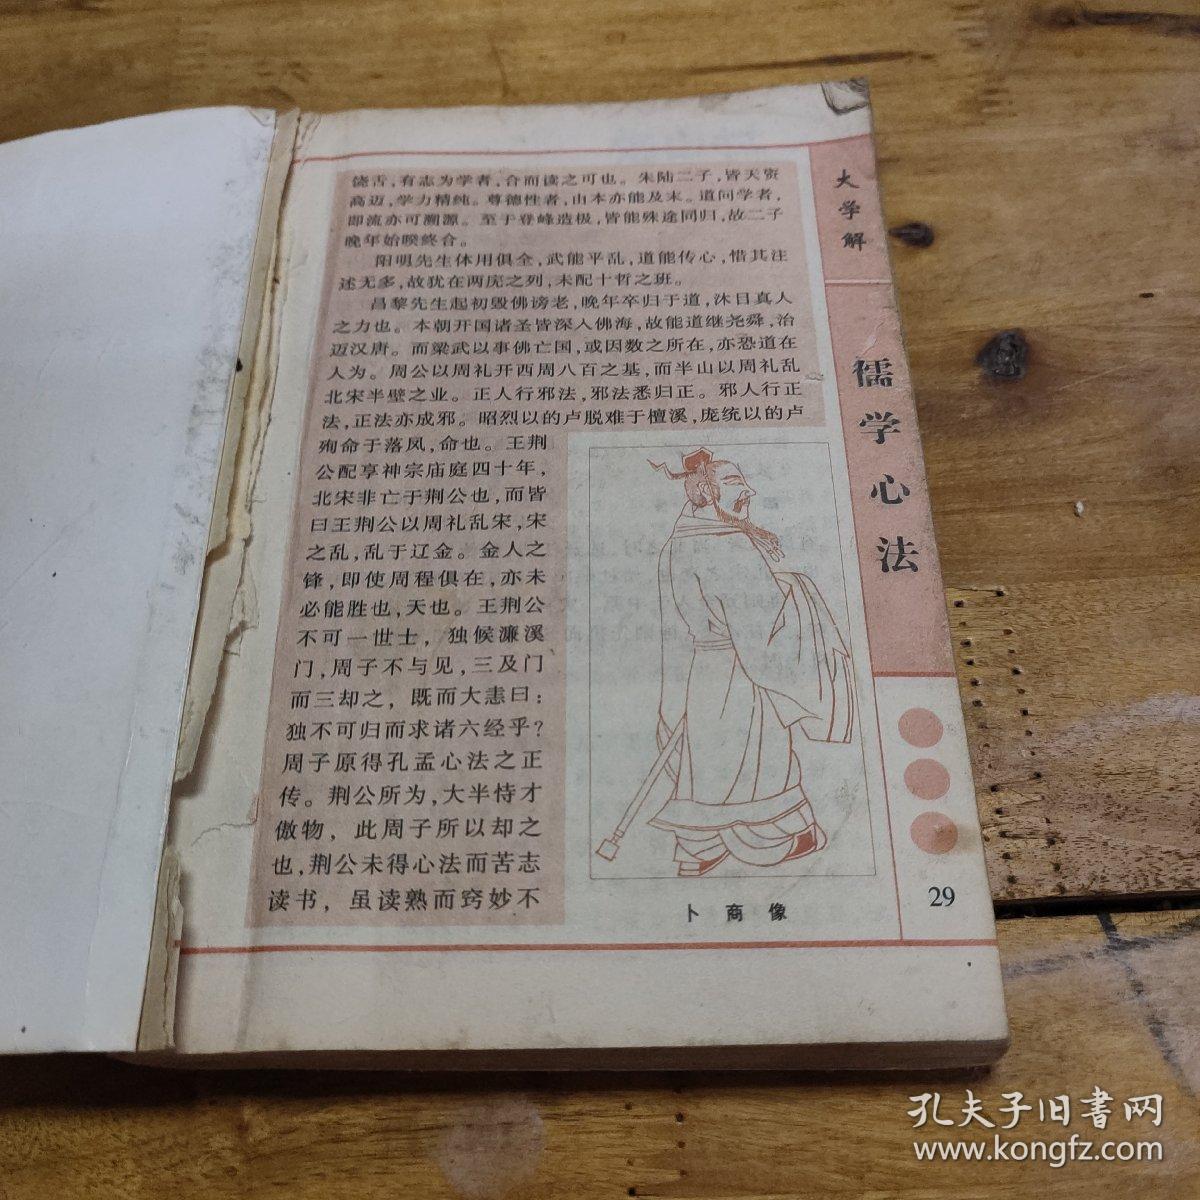 饶舌，有志为学者，合而读之可也。朱陆二子，皆天资
高迈，学力精纯。尊德性者，由本亦能及末。道问学者，
即流亦可溯源。至于登峰造极，皆能殊途同归，故二子
晚年始暌终合。
阳明先生体用俱全，武能平乱，道能传心，惜其注
述无多，故犹在两庑之列，未配十哲之班。
昌黎先生起初毁佛谤老，晚年卒归于道，沐目真人
之力也。本朝开国诸圣皆深入佛海，故能道继尧舜，治
迈汉唐。而梁武以事佛亡国，或因数之所在，亦恐道在
人为。周公以周礼开西周八百之基，而半山以周礼乱
北宋半壁之业。正人行邪法，邪法悉归正。邪人行正
法，正法亦成邪。昭烈以的卢脱难于檀溪，庞统以的卢
殉命于落凤，命也。王荆
公配享神宗庙庭四十年，
北宋非亡于荆公也，而皆
曰王荆公以周礼乱宋，宋
之乱，乱于辽金。金人之
锋，即使周程俱在，亦未
必能胜也，天也。王荆公
不可一世士，独候濂溪
门，周子不与见，三及门
而三却之，既而大恚曰：
独不可归而求诸六经乎？
周子原得孔孟心法之正
传。荆公所为，大半恃才
傲物，此周子所以却之
也，荆公未得心法而苦志
读书，虽读熟而窍妙不
卜商像
大学解
儒学心法
29
孔夫子旧书网
www.kongfz.com